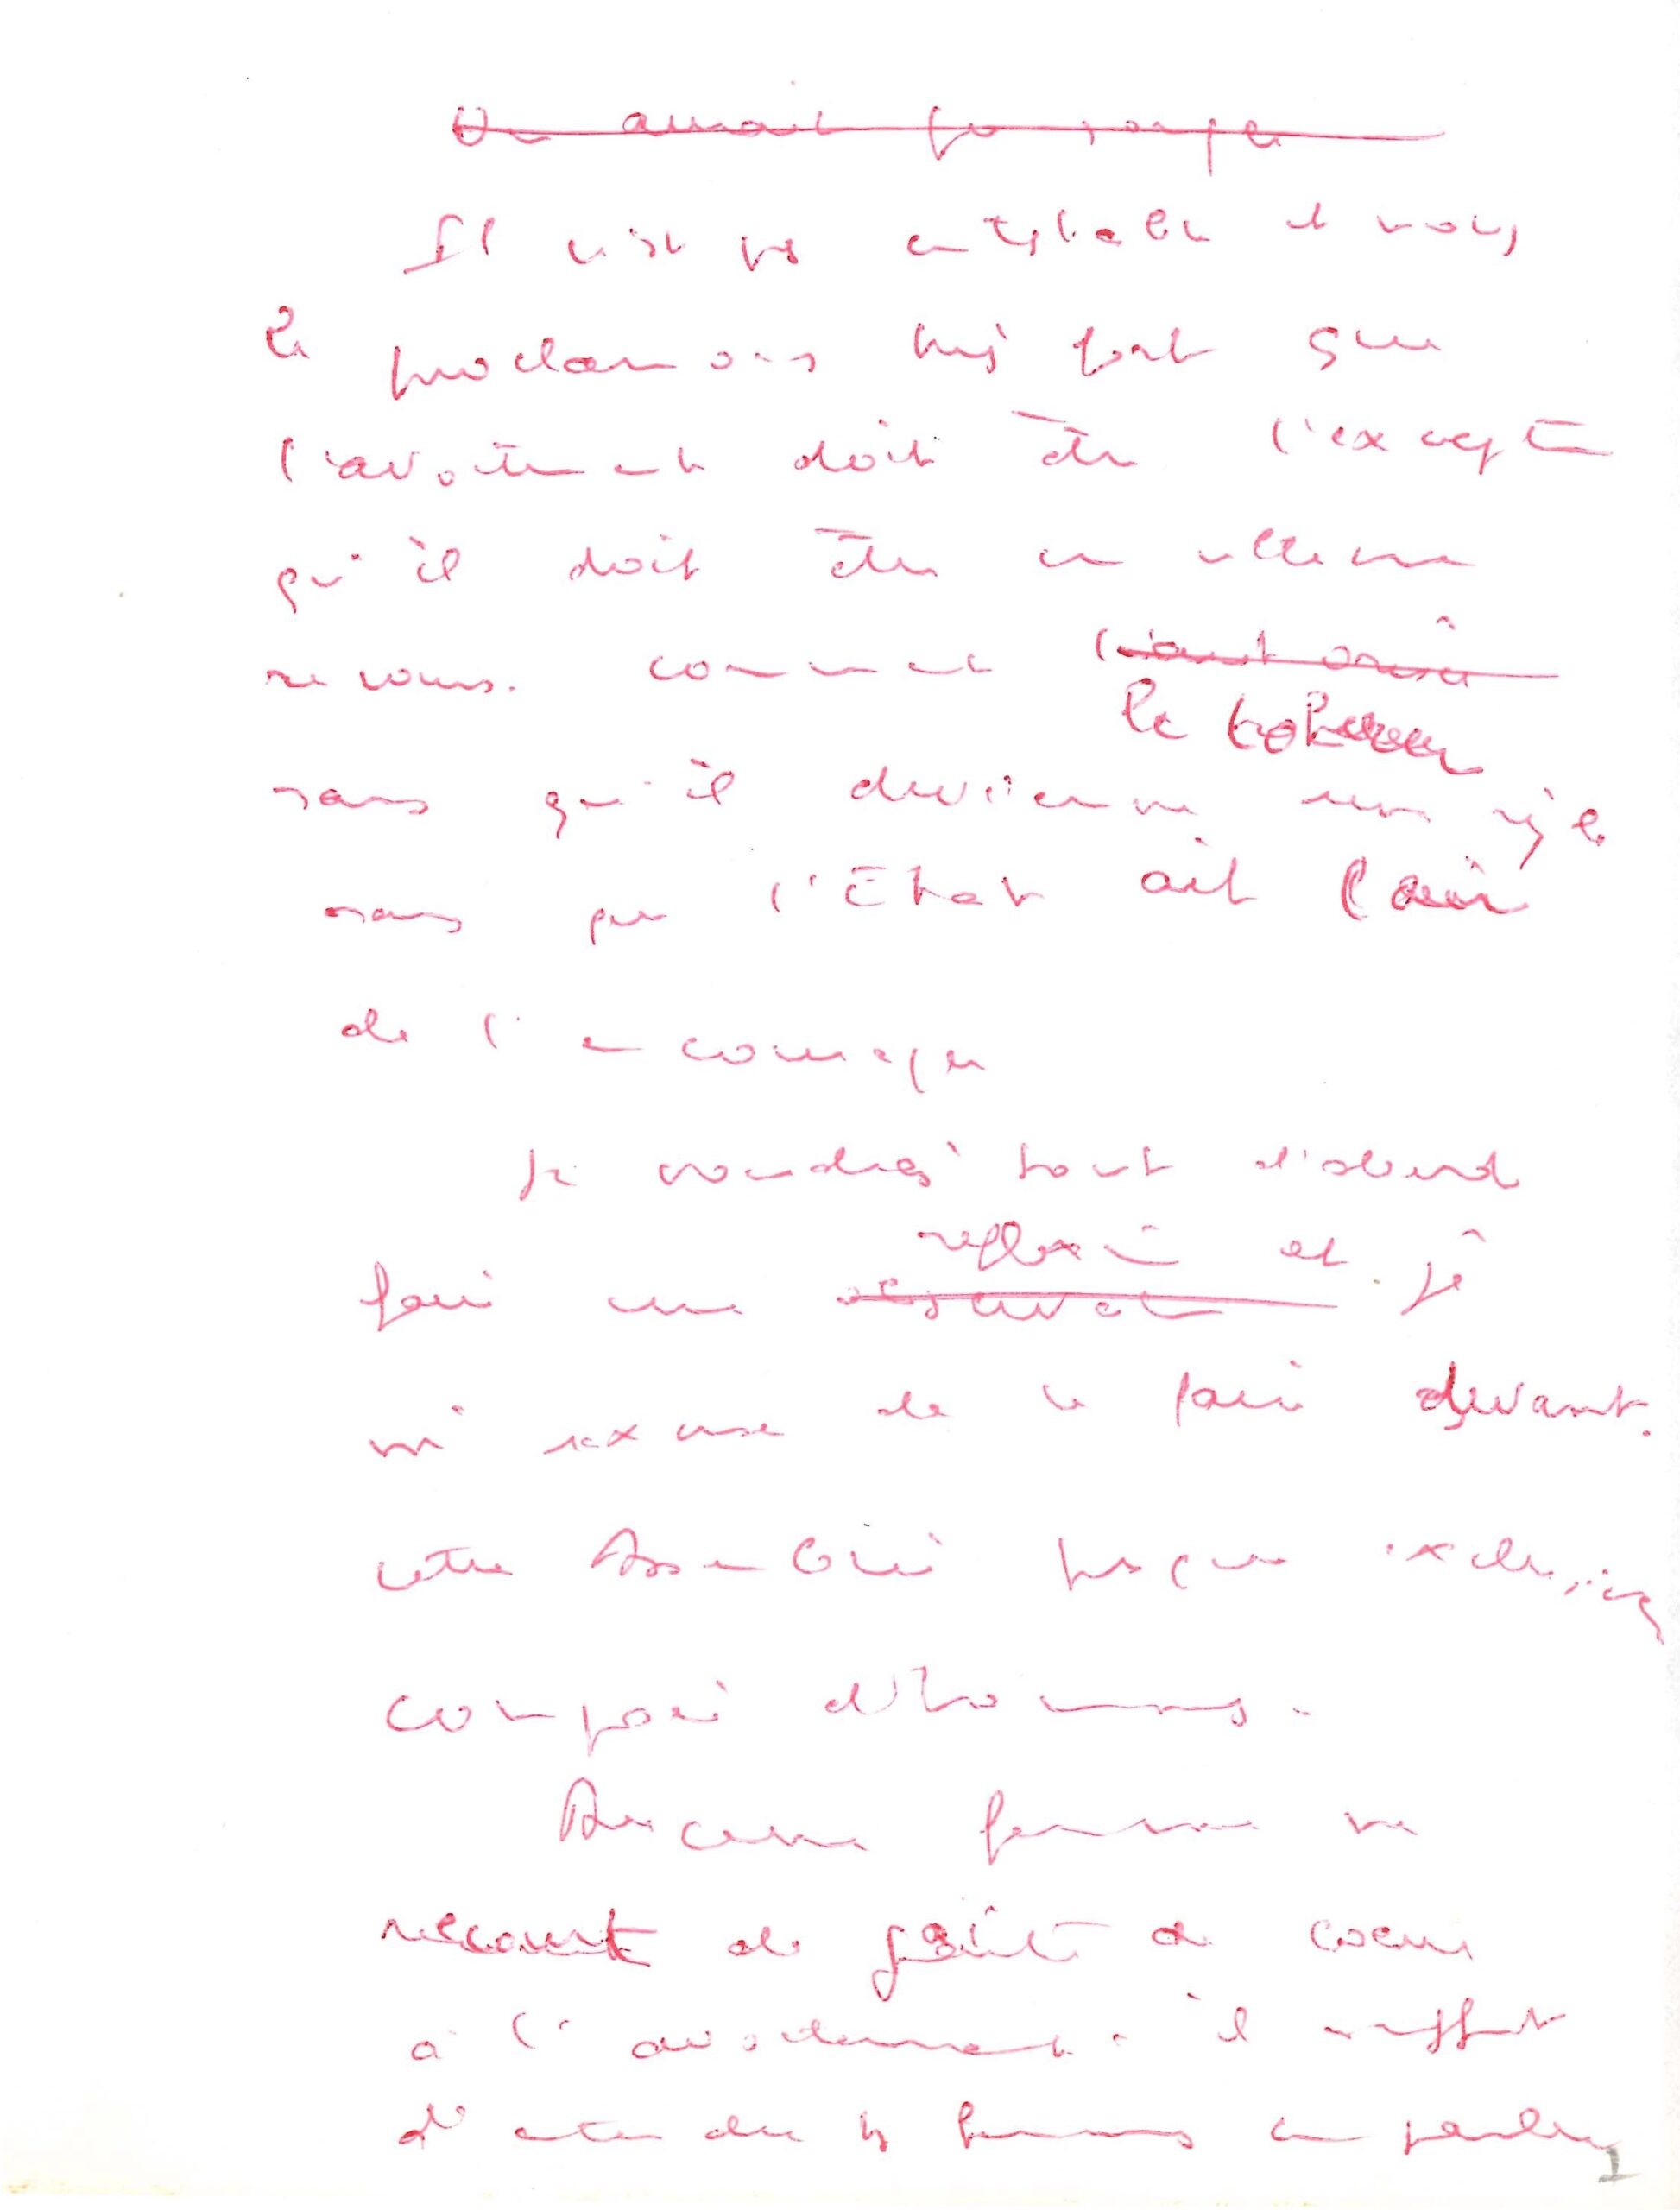 On aurait pu songer
Il n'est pas contestable et nous
le proclamons très fort que
l'avortement doit être l'exception
qu'il doit être un ultime
recours. comment
le tolérer
sans qu'il devienne une règle
sans que l'Etat ait l'air
de l'encourager
Je voudrais tout d'abord
réflexion et je
faire une observation
m'excuse de le faire devant
cette Assemblée presque exclusivement
composée d'hommes.
Aucune femme ne
recourt de gaîté de coeur
à l'avortement. il suffit
d'entendre les femmes en parler
1